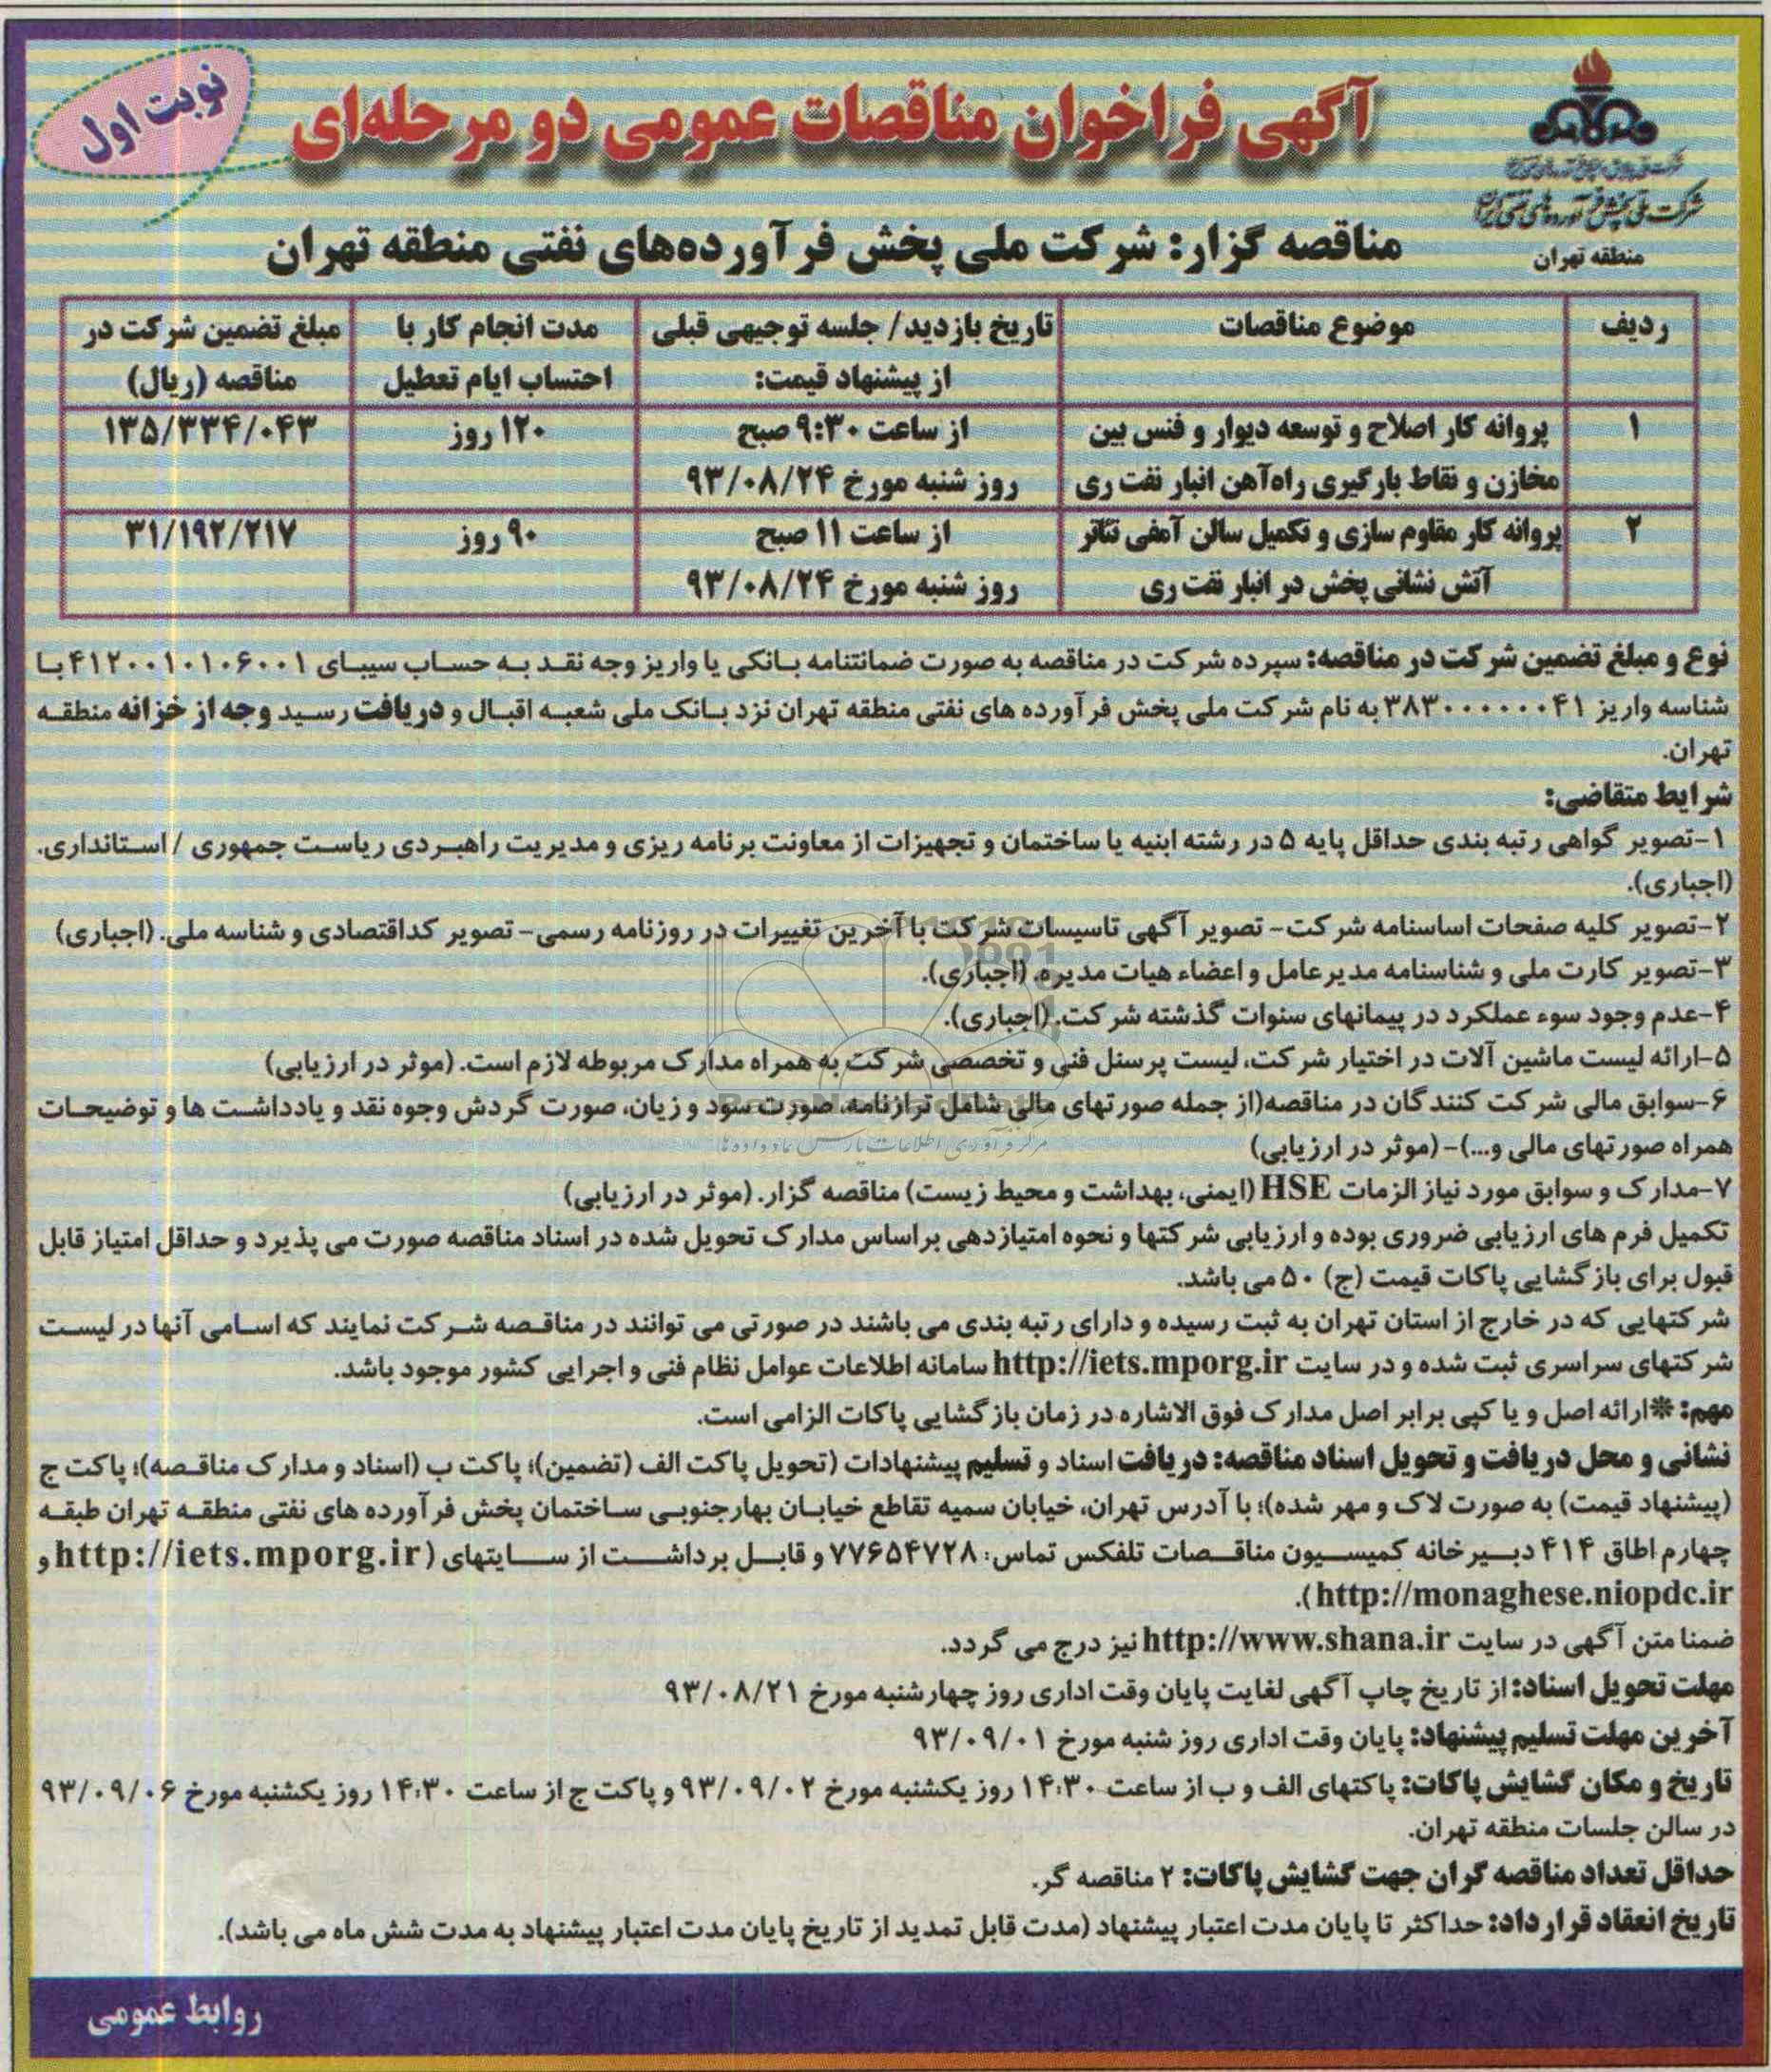 نوبت اول
آگهی فراخوان مناقصات عمومی دو مرحله‌ای
شرکت ملی پخش فرآورده‌های نفتی ایران
منطقه تهران
مناقصه گزار: شرکت ملی پخش فرآورده‌های نفتی منطقه تهران
ردیف | موضوع مناقصات | تاریخ بازدید/ جلسه توجیهی قبلی از پیشنهاد قیمت: | مدت انجام کار با احتساب ایام تعطیل | مبلغ تضمین شرکت در مناقصه (ریال)
۱ | پروانه کار اصلاح و توسعه دیوار و فنس بین مخازن و نقاط بارگیری راه‌آهن انبار نفت ری | از ساعت ۹:۳۰ صبح روز شنبه مورخ ۹۳/۰۸/۲۴ | ۱۲۰ روز | ۱۳۵/۳۳۴/۰۴۳
۲ | پروانه کار مقاوم سازی و تکمیل سالن آمفی تئاتر آتش نشانی پخش در انبار نفت ری | از ساعت ۱۱ صبح روز شنبه مورخ ۹۳/۰۸/۲۴ | ۹۰ روز | ۳۱/۱۹۲/۲۱۷
نوع و مبلغ تضمین شرکت در مناقصه: سپرده شرکت در مناقصه به صورت ضمانتنامه بانکی یا واریز وجه نقد به حساب سیبای ۴۱۲۰۰۱۰۱۰۶۰۰۱ با
شناسه واریز ۳۸۳۰۰۰۰۰۰۴۱ به نام شرکت ملی پخش فرآورده های نفتی منطقه تهران نزد بانک ملی شعبه اقبال و دریافت رسید وجه از خزانه منطقه
تهران.
شرایط متقاضی:
۱-تصویر گواهی رتبه بندی حداقل پایه ۵ در رشته ابنیه یا ساختمان و تجهیزات از معاونت برنامه ریزی و مدیریت راهبردی ریاست جمهوری / استانداری.
(اجباری).
۲-تصویر کلیه صفحات اساسنامه شرکت- تصویر آگهی تاسیسات شرکت با آخرین تغییرات در روزنامه رسمی- تصویر کداقتصادی و شناسه ملی. (اجباری)
۳-تصویر کارت ملی و شناسنامه مدیرعامل و اعضاء هیات مدیره. (اجباری).
۴-عدم وجود سوء عملکرد در پیمانهای سنوات گذشته شرکت. (اجباری).
۵-ارائه لیست ماشین آلات در اختیار شرکت، لیست پرسنل فنی و تخصصی شرکت به همراه مدارک مربوطه لازم است. (موثر در ارزیابی)
۶-سوابق مالی شرکت کنندگان در مناقصه(از جمله صورتهای مالی شامل ترازنامه، صورت سود و زیان، صورت گردش وجوه نقد و یادداشت ها و توضیحات
همراه صورتهای مالی و...)- (موثر در ارزیابی)
۷-مدارک و سوابق مورد نیاز الزمات HSE (ایمنی، بهداشت و محیط زیست) مناقصه گزار. (موثر در ارزیابی)
تکمیل فرم های ارزیابی ضروری بوده و ارزیابی شرکتها و نحوه امتیازدهی براساس مدارک تحویل شده در اسناد مناقصه صورت می پذیرد و حداقل امتیاز قابل
قبول برای بازگشایی پاکات قیمت (ج) ۵۰ می باشد.
شرکتهایی که در خارج از استان تهران به ثبت رسیده و دارای رتبه بندی می باشند در صورتی می توانند در مناقصه شرکت نمایند که اسامی آنها در لیست
شرکتهای سراسری ثبت شده و در سایت http://iets.mporg.ir سامانه اطلاعات عوامل نظام فنی و اجرایی کشور موجود باشد.
مهم: *ارائه اصل و یا کپی برابر اصل مدارک فوق الاشاره در زمان بازگشایی پاکات الزامی است.
نشانی و محل دریافت و تحویل اسناد مناقصه: دریافت اسناد و تسلیم پیشنهادات (تحویل پاکت الف (تضمین)؛ پاکت ب (اسناد و مدارک مناقصه)؛ پاکت ج
(پیشنهاد قیمت) به صورت لاک و مهر شده)؛ با آدرس تهران، خیابان سمیه تقاطع خیابان بهارجنوبی ساختمان پخش فرآورده های نفتی منطقه تهران طبقه
چهارم اطاق ۴۱۴ دبیرخانه کمیسیون مناقصات تلفکس تماس: ۷۷۶۵۴۷۲۸ و قابل برداشت از سایتهای (http://iets.mporg.ir و
http://monaghese.niopdc.ir).
ضمنا متن آگهی در سایت http://www.shana.ir نیز درج می گردد.
مهلت تحویل اسناد: از تاریخ چاپ آگهی لغایت پایان وقت اداری روز چهارشنبه مورخ ۹۳/۰۸/۲۱
آخرین مهلت تسلیم پیشنهاد: پایان وقت اداری روز شنبه مورخ ۹۳/۰۹/۰۱
تاریخ و مکان گشایش پاکات: پاکتهای الف و ب از ساعت ۱۴:۳۰ روز یکشنبه مورخ ۹۳/۰۹/۰۲ و پاکت ج از ساعت ۱۴:۳۰ روز یکشنبه مورخ ۹۳/۰۹/۰۶
در سالن جلسات منطقه تهران.
حداقل تعداد مناقصه گران جهت گشایش پاکات: ۲ مناقصه گر.
تاریخ انعقاد قرارداد: حداکثر تا پایان مدت اعتبار پیشنهاد (مدت قابل تمدید از تاریخ پایان مدت اعتبار پیشنهاد به مدت شش ماه می باشد).
روابط عمومی